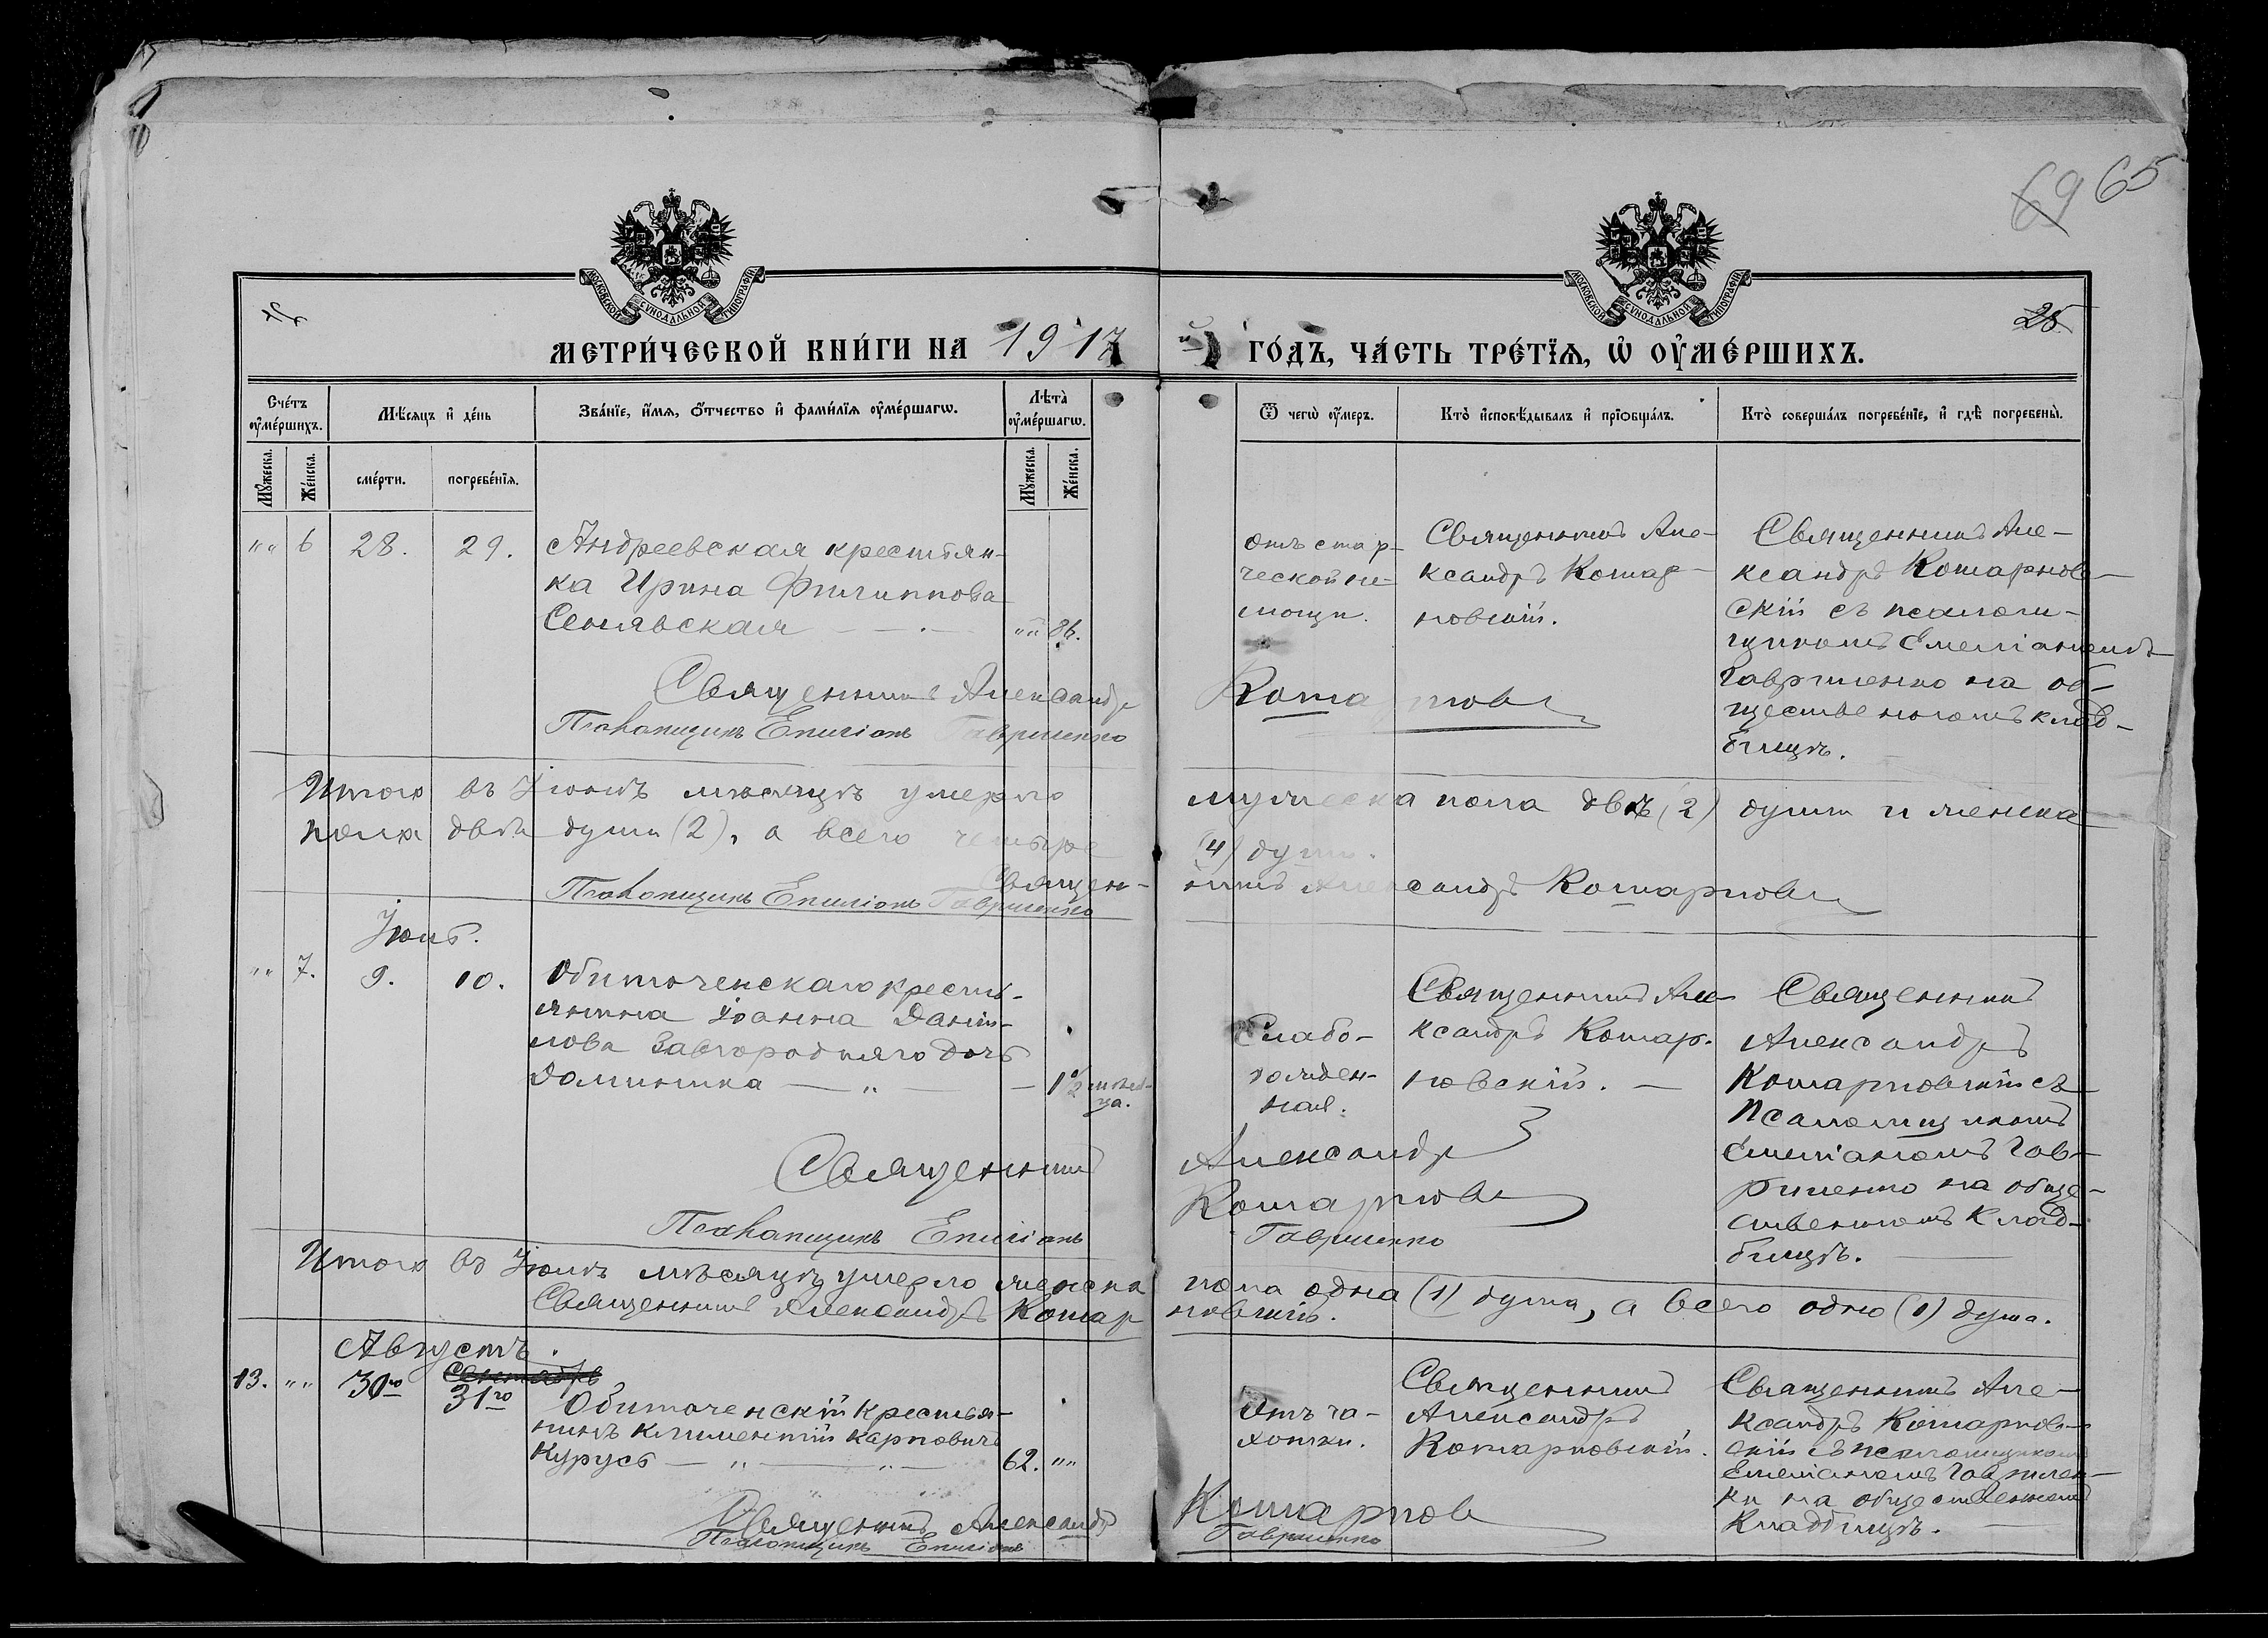 69 65
МОСКОВСКОЙ СѴНОДАЛЬНОЙ ТИПОГРАФІИ
МОСКОВСКОЙ СѴНОДАЛЬНОЙ ТИПОГРАФІИ
25
МЕТРИ́ЧЕСКОЙ КНИ́ГИ НА 1917 й ГО́ДЪ, ЧА́СТЬ ТРЕ́ТЇѦ, Ѡ҆ ОУ҆МЕ́РШИХЪ.
Сче́тъ оу҆ме́ршихъ.
Мѣ́сяцъ и҆ де́нь
Зва́нїе, и҆́мѧ, ѻ҆́тчество и҆ фами́лїѧ оу҆ме́ршагѡ.
Лѣ̑та̀ оу҆ме́ршагѡ.
Ѿ чегѡ̀ оу҆́меръ.
Кто̀ и҆сповѣ́дывалъ и҆ прїѻбща́лъ.
Кто̀ соверша́лъ погребе́нїе, и҆ гдѣ̀ погребены̀.
Мꙋ́жеска.
Же́нска.
сме́рти.
погребе́нїѧ.
Мꙋ́жеска.
Же́нска.
"" 6 28. 29.
Андреевская крестьян-
ка Ирина Филиппова
"" 86.
отъ стар-
ческой не-
мощи.
Священникъ Але-
ксандръ Комар-
новскій.
Священникъ Але-
ксандръ Комарнов-
скій съ псалом-
щикомъ Емеліаномъ
Гавриленко на об-
щественномъ клад-
бищѣ.
Священникъ Александръ Комарнов
Псаломщикъ Емиліанъ Гавриленко
Итого въ Іюнѣ мѣсяцѣ умерло мужеска пола двѣ (2) души и женска
пола двѣ души (2), а всего четыре (4) души.
Священникъ Александръ Комарнов
Псаломщикъ Емиліанъ Гавриленко
Іюль.
"" 7. 9. 10.
Обиточенскаго кресть-
янина Іоанна Даніи-
лова Завгородняго дочь
Домникка — " — 1 1/2 мѣся-
ца.
Слабо-
рожден-
ная.
Священникъ Але-
ксандръ Комар-
новскій. —
Священникъ
Александръ
Комарновскій съ
Псаломщикомъ
Емеліаномъ Гав-
риленко на обще-
ственномъ клад-
бищѣ.
Священникъ Александр Комарнов
Псаломщикъ Емиліанъ Гавриленко
Итого въ Іюлѣ мѣсяцѣ умерло женска пола одна (1) душа, а всего одна (1) душа.
Священникъ Александръ Комарновскій.
Августъ.
Сентябрь
13. "" 30го 31го
Обиточенскій крестья-
нинъ Климентій Карповичъ
Курусь — " — " — 62. ""
Отъ ча-
хотки.
Священникъ
Александръ
Комарновскій.
Священникъ Але-
ксандръ Комарнов-
скій съ псаломщикомъ
Емеліаномъ Гаврилен-
ко на общественномъ
кладбищѣ.
Священникъ Александръ Комарнов
Псаломщикъ Емиліанъ Гавриленко